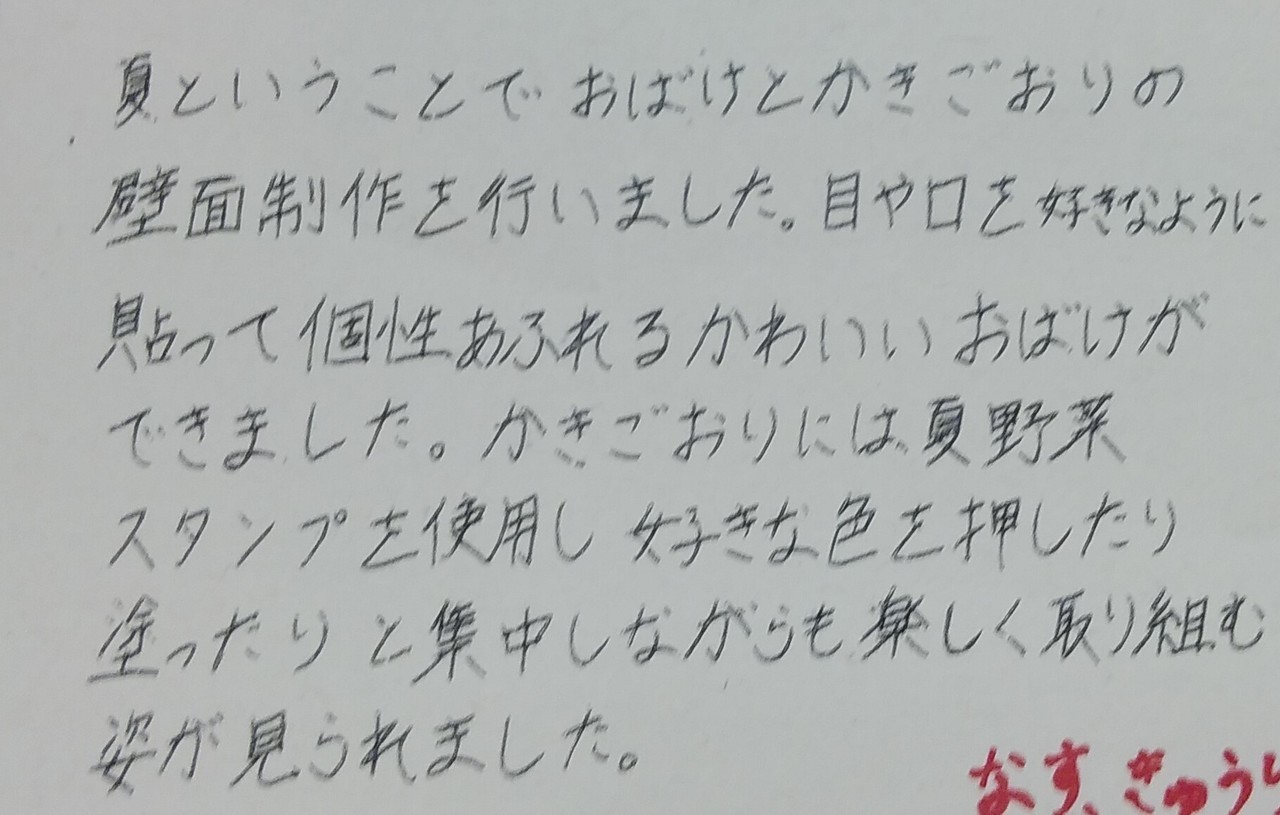 夏ということで おばけとかきごおりの
壁面制作を行いました。目や口を好きなように
貼って個性あふれるかわいいおばけが
できました。かきごおりには夏野菜
スタンプを使用し 好きな色を押したり
塗ったりと集中しながらも楽しく取り組む
姿が見られました。
なす、きゅうり